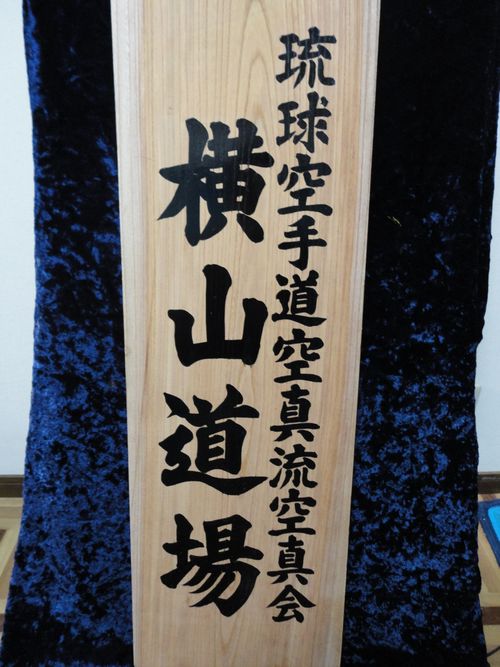 琉球空手道空真流空真会
横山道場